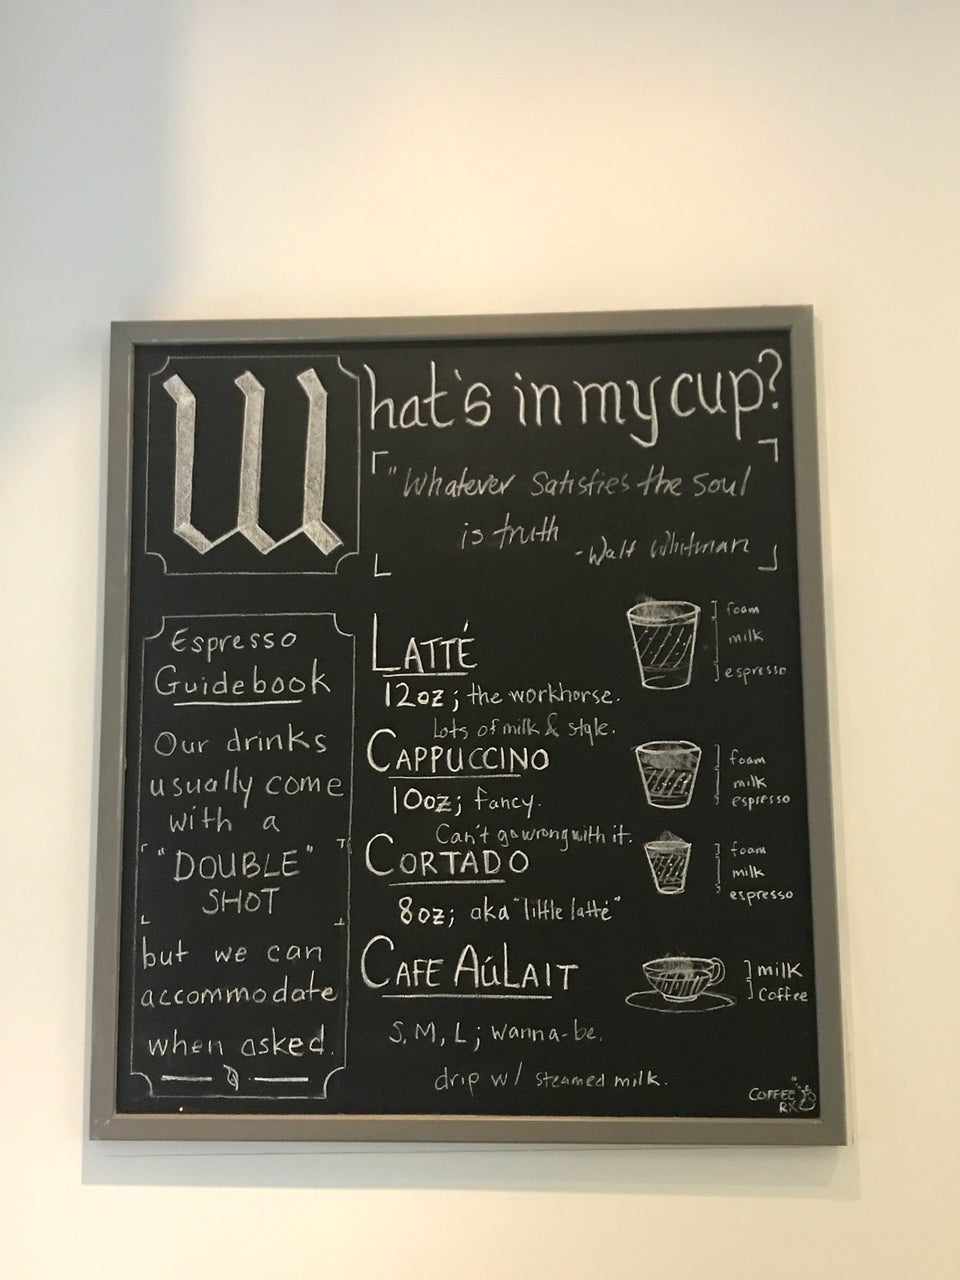 What's in my cup?
"Whatever Satisfies the Soul
is truth
-Walt Whitman
Espresso
Guidebook
Our drinks
usually come
with a
"DOUBLE"
SHOT
but we can
accommodate
when asked.
LATTÉ
12oz; the workhorse.
Lots of milk & style.
foam
milk
espresso
CAPPUCCINO
10oz; fancy.
Can't go wrong with it.
foam
milk
espresso
CORTADO
8oz; aka "little latté"
foam
milk
espresso
CAFE AÚLAIT
S, M, L; wanna-be.
drip w/ steamed milk.
milk
Coffee
COFFEE
RX